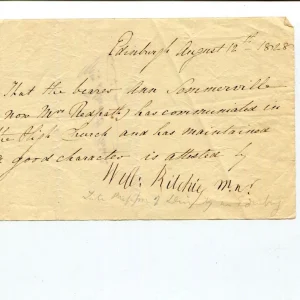 Edinburgh August 12th 1828
That the bearer Ann Sommerville
now Mrs Redpath, has communicated in
the High Church and has maintained
a good character is attested by
Willm Ritchie Minr.